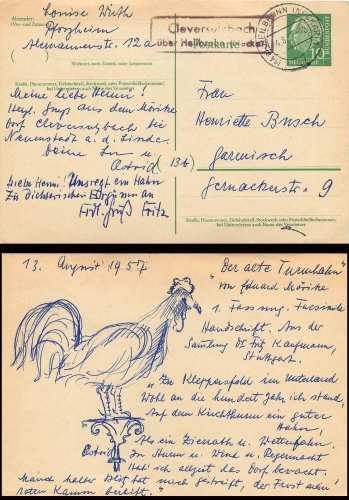 Absender:
Louise Wirth
Pforzheim
12a
Wohnort, auch Zustell- oder Leitpostamt
Straße, Hausnummer, Gebäudeteil, Stockwerk oder Postschließfachnummer
Cleversulzbach
über Heilbronn (Neckar)
Postkarte
HEILBRONN (NECKAR)
DEUTSCHE BUNDESPOST
10
Meine liebe Henni!
Herzl. Gruß aus dem Mörike
Dorf Cleversulzbach bei
Neuenstadt a. d. Linde.
Deine
Astrid
Liebe Henni! Uns regt ein Hahn
zu dichterischen Ergüssen an
Fritz
Frau
Henriette Busch
(13b)
Garmisch
9
Straße, Hausnummer, Gebäudeteil, Stockwerk oder Postschließfachnummer,
bei Untermietern auch Name des Vermieters
13. August 1957
"Der alte Turmhahn"
von Eduard Mörike
1. Fassung. Facsimile
Handschrift. Aus der
Samlung Dr. Fritz Kaufmann,
Stuttgart.
"Zu Kleppersfeld im Unterland
Wohl an die hundert Jahr ich stand,
Auf dem Kirchthurm ein guter
Hahn,
Als ein Zierath u. Wetterfahn.
In Sturm u. Wind u. Regennacht
Hab' ich allzeit das Dorf bewacht.
Manch falber Blitz hat mich gestreift, der Frost mein'
roten Kamm bereift."
Astrid